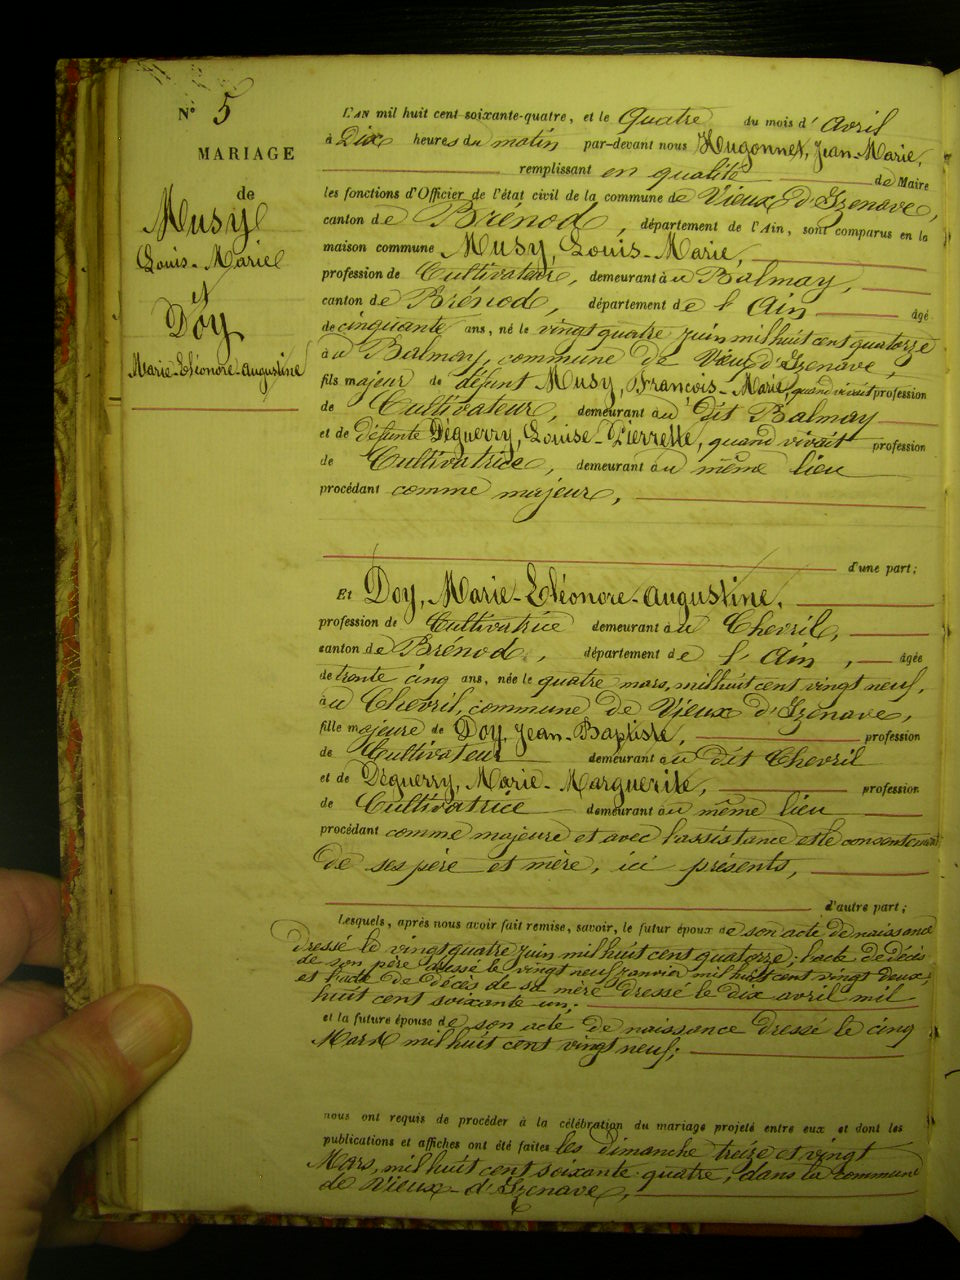 N° 5
MARIAGE
de
Musy
Louis-Marie
et
Doy
Marie-Eléonore-Augustine
L'AN mil huit cent soixante-quatre, et le Quatre du mois d'Avril
à Dix heures du matin par-devant nous Hugonnet, Jean-Marie,
remplissant en qualité de Maire
les fonctions d'Officier de l'état civil de la commune de Vieux d'Izenave,
canton de Brénod, département de l'Ain, sont comparus en la
maison commune Musy, Louis-Marie,
profession de Cultivateur, demeurant à u Balmay,
canton de Brénod, département de l'Ain âgé
de cinquante ans, né le vingt quatre juin mil huit cent quatorze
à u Balmay, commune de Vieux d'Izenave,
fils majeur de défunt Musy, François-Marie, quand vivait profession
de Cultivateur, demeurant au dit Balmay
et de défunte Déguerry, Louise-Pierrette, quand vivait profession
de Cultivatrice, demeurant au même lieu
procédant comme majeur,
d'une part;
Et Doy, Marie-Eléonore-Augustine,
profession de Cultivatrice demeurant à u Chevril,
canton de Brénod, département de l'Ain, âgée
de trente cinq ans, née le quatre mars, mil huit cent vingt neuf,
au Chevril, commune de Vieux d'Izenave,
fille majeure de Doy, Jean-Baptiste, profession
de Cultivateur demeurant au dit Chevril
et de Déguerry, Marie-Marguerite, profession
de Cultivatrice demeurant au même lieu
procédant comme majeure et avec l'assistance et le consentement
de ses père et mère, ici présents,
d'autre part;
Lesquels, après nous avoir fait remise, savoir, le futur époux de son acte de naissance
dressé le vingt quatre juin mil huit cent quatorze; l'acte de décès
de son père dressé le vingt neuf janvier mil huit cent vingt deux;
et l'acte de décès de sa mère dressé le dix avril mil
huit cent soixante un;
et la future épouse de son acte de naissance dressé le cinq
Mars mil huit cent vingt neuf;
nous ont requis de procéder à la célébration du mariage projeté entre eux et dont les
publications et affiches ont été faites les Dimanche treize et vingt
Mars, mil huit cent soixante quatre, dans la commune
de Vieux-d'Izenave,